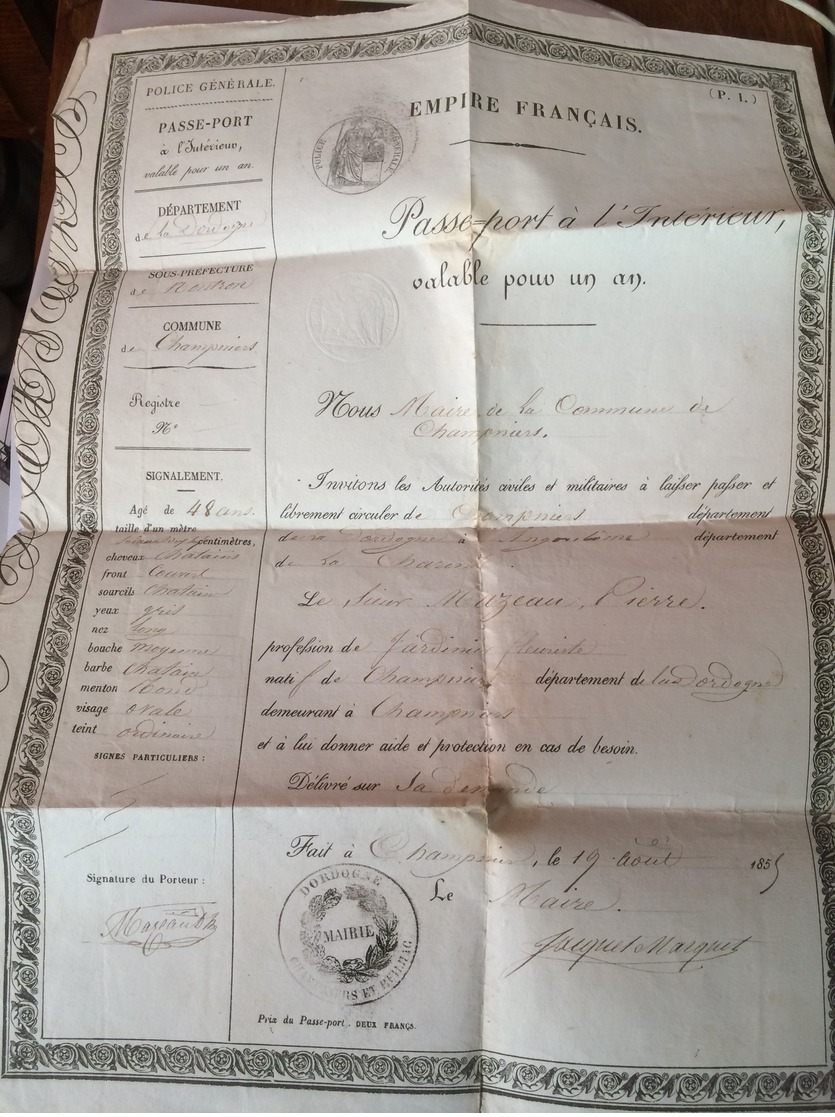 POLICE GÉNÉRALE.
PASSE-PORT
à l'Intérieur,
valable pour un an.
DÉPARTEMENT
de la Dordogne
SOUS-PRÉFECTURE
de Nontron
COMMUNE
de Champniers
Registre
N°
SIGNALEMENT.
Agé de 48 ans.
taille d'un mètre
centimètres,
cheveux chatains
front couvert
sourcils chatain
yeux gris
nez long
bouche moyenne
barbe chatain
menton rond
visage ovale
teint ordinaire
SIGNES PARTICULIERS :
Signature du Porteur :
(P. 1.)
EMPIRE FRANÇAIS.
POLICE GÉNÉRALE
Passe-port à l'Intérieur,
valable pour un an.
Nous Maire de la Commune de
Champniers.
Invitons les Autorités civiles et militaires à laisser passer et
librement circuler de Champniers département
de la Dordogne à Angoulême département
de la Charente.
Le Sieur Mazeau, Pierre.
profession de Jardinier fleuriste
natif de Champniers département de la Dordogne
demeurant à Champniers
et à lui donner aide et protection en cas de besoin.
Délivré sur sa demande
Fait à Champniers, le 19 août 1855
Le Maire.
DORDOGNE
MAIRIE
CHAMPNIERS ET REILHAC
Prix du Passe-port. DEUX FRANCS.